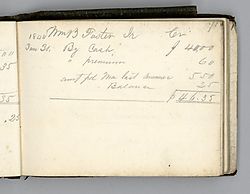 1840 Wm B Foster Jr Cr
Jan 31. By Cash $ 40.00
" premium 60
amt pd Ma last summer 5.50
" Balance 25
$ 46.35
.35
.25